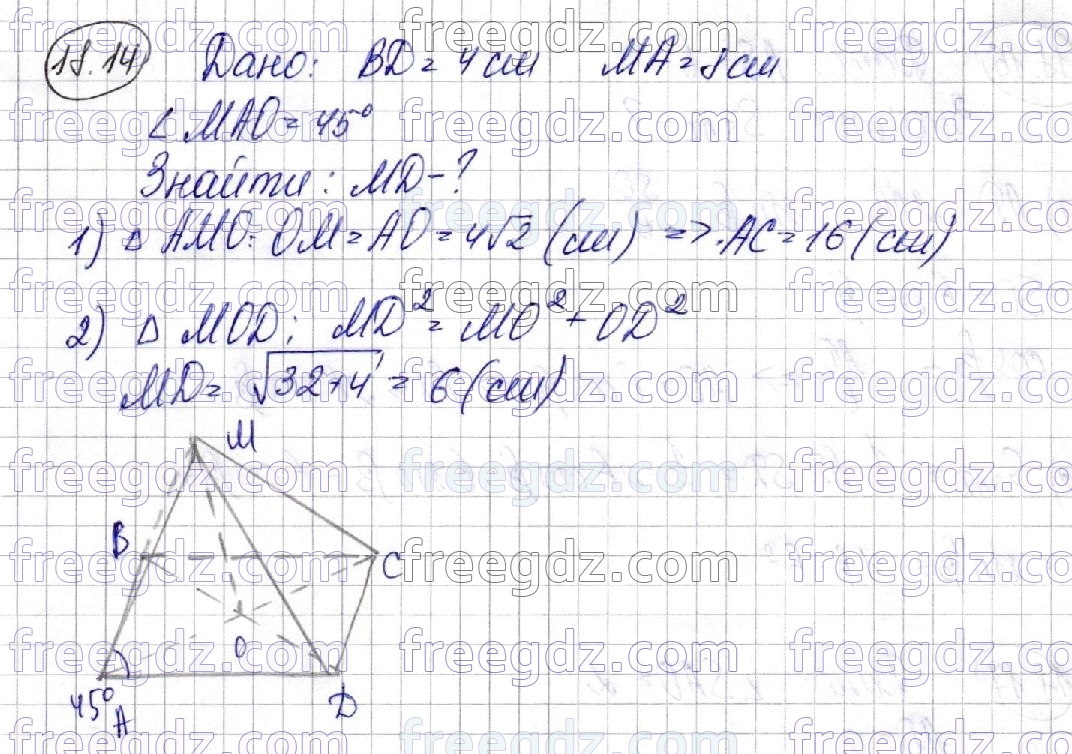 18.14 Дано: BD = 4 см MA = 8 см
∠ MAO = 45°
Знайти: MD - ?
1) Δ AMO: OM = AO = 4√2 (см) => AC = 16 (см)
2) Δ MOD; MD² = MO² + OD²
MD = √32+4 = 6 (см)
M
B
C
O
45°
A
D
freegdz.com